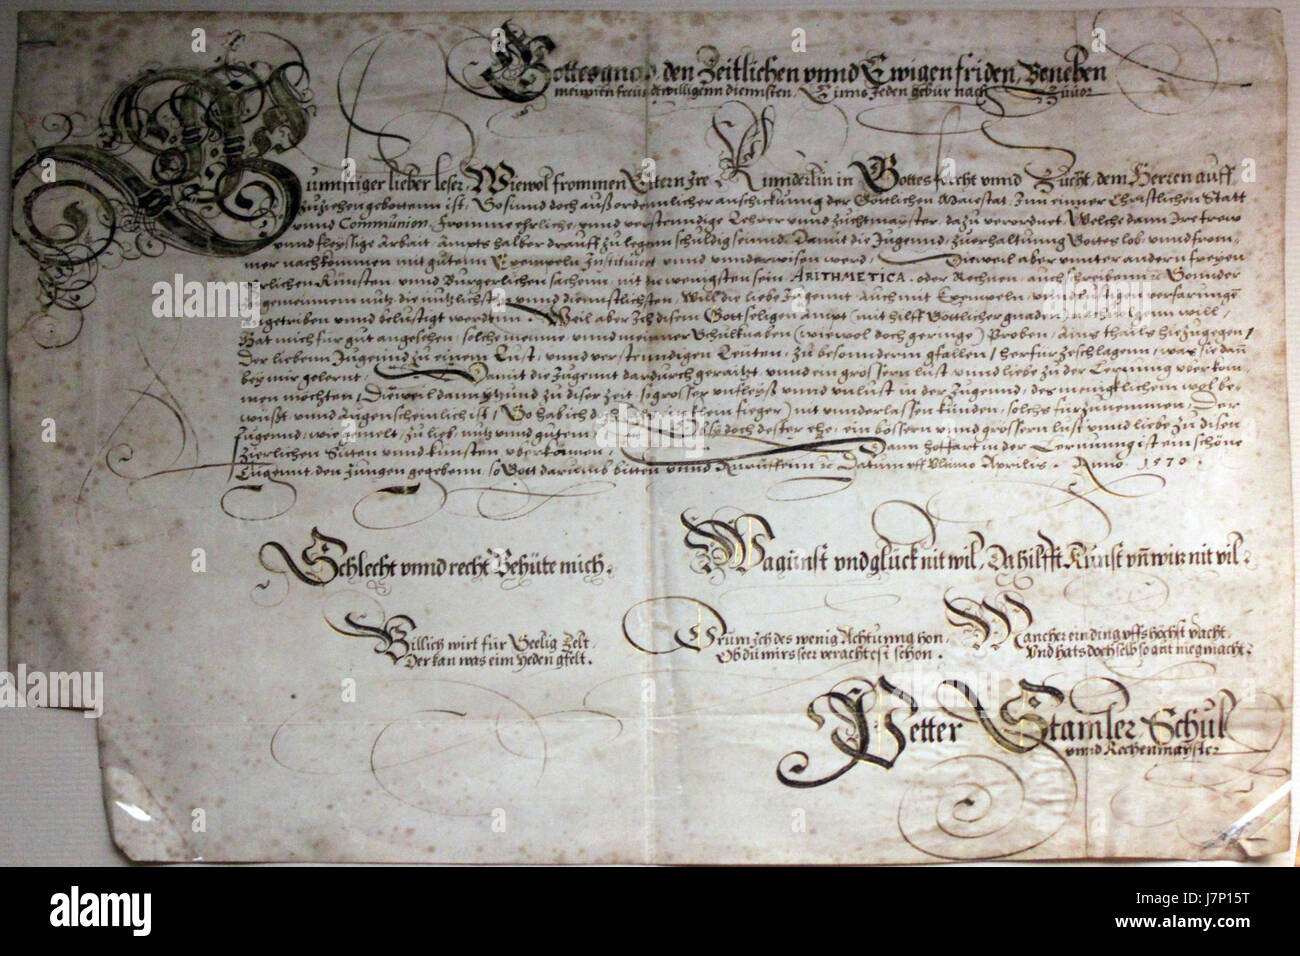 Gottes gnad, den Zeitlichen vnnd Ewigen friden, Beneben
meinnen freuidtwilligenn diennsten, Einns Jeden gebür nach Zuuor
Gunnstiger lieber leser, Wiewol frommen Eltern Ire Kinnderlin in Gottesforcht vnnd Zucht, dem Herren auff
zuziehen gebotten ist, So sinnd doch außordennlicher anschickunng der Göttlichen Maiestat, Inn einner Christlichen Statt
vnnd Communion, Fromme ehrliche, vnnd verstenndige Lehrer vnnd Zuchtmayster, dazu verordnet, Welche dann Ire trew
vnnd fleyssige Arbait, Ampts halber drauff zu legenn schuldig seinnd. Damit die Jugennd, zu erhaltunng Gottes lob, vnnd from-
mer nachkommen mit gutenn Exempeln Instituiert vnnd vnnderwisen werd, Dieweil aber vnnter andern freyen
Ehrlichen Künsten, vnnd Burgerlichen sachenn, nit zu wenigsten sein ARITHMETICA, oder Rechnen, auch schreibenn ꝛc Sonnder
gemeinnem nutz die nützlichsten, vnnd diennstlichsten, Will die liebe Jugennt auch mit Exempeln, vnnd lustigen verfarungē
angetriben vnnd belustigt werdenn. Weil aber Ich disem Gottseligen ampt (mit hilff Göttlicher gnaden) nachuolgenn will,
Hat mich für gut angesehen, solche meine, vnnd meinner Schulknaben (wiewol doch geringe) Proben, ains thails hiezugegen,
Der liebenn Jugennd zu einem Lust, vnnd verstenndigen Leüten, zu besonnderm gfallen, herfür zeschlagenn, was sie dañ
bey mir gelernt, Damit die Jugennt dardurch geraitzt, vnnd ein grossern lust vnnd liebe zu der Lernung vberkom-
men möchten, Dieweil dann ytzund zu diser zeit, so grosser vnfleyß vnnd vnlust in der Jugennd, des menigklichem wol be-
wüßt, vnnd augenscheinlich ist, So hab ich doch fieger) nit vnnderlassen künden, solchs fürzunemmen, Der
Jugennd, wie gemelt, zu lieb, nutz vnnd gutem, doch dester ehe, ein bössern vnnd grössern lust vnnd liebe zu disen
zierlichen Siten vnnd künsten vberkämen, Dann hoffart in der Lernnung ist ein schöne
Tugennt, den Jungen gegebenn, so Gott darumb bitten vnnd Anrüffenn ꝛc Datum vff Aprilis. Anno. 1570.
Schlecht vnnd recht Behüte mich.
Wa gunst vnd glück nit wil, Da hilfft Kunst vñ witz nit vil.
Billich wirt für Seelig zelt,
Der kan was eim yeden gfelt.
Drum Ich des wenig Achtunng hon,
Ob du mirs seer verachtest schon.
Mancher ein ding vffs höchst vacht,
Vnd hats doch selb so gut nie gmacht.
Petter Stamler Schul
vnnd Rechenmayster
alamy
Image ID: J7P15T
www.alamy.com